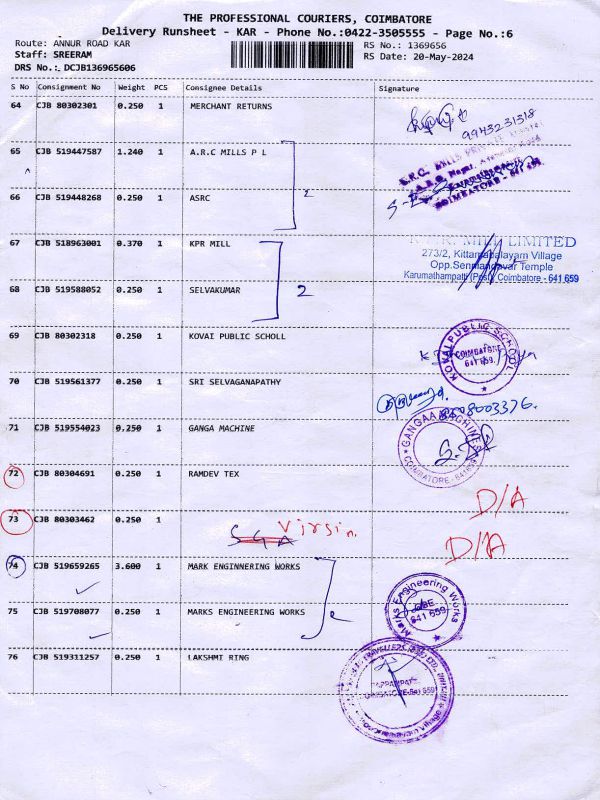 THE PROFESSIONAL COURIERS, COIMBATORE
Delivery Runsheet - KAR - Phone No.:0422-3505555 - Page No.:6
Route: ANNUR ROAD KAR
Staff: SREERAM
DRS No.: DCJB136965606
RS No.: 1369656
RS Date: 20-May-2024
S No Consignment No Weight PCS Consignee Details Signature
64 CJB 80302301 0.250 1 MERCHANT RETURNS
9943231318
65 CJB 519447587 1.240 1 A.R.C MILLS P L
COIMBATORE - 641 659.
66 CJB 519448268 0.250 1 ASRC
2
67 CJB 518963001 0.370 1 KPR MILL
MILL LIMITED
273/2, Kittampalayam Village
Opp.Senmandavar Temple
Karumathampatti (Post) Coimbatore - 641 659
68 CJB 519588052 0.250 1 SELVAKUMAR
2
69 CJB 80302318 0.250 1 KOVAI PUBLIC SCHOLL
KOVAI PUBLIC SCHOOL
COIMBATORE
641 659.
70 CJB 519561377 0.250 1 SRI SELVAGANAPATHY
8003376.
71 CJB 519554023 0.250 1 GANGA MACHINE
GANGAA MACHINES
COIMBATORE - 641659
72 CJB 80304691 0.250 1 RAMDEV TEX
D/A
73 CJB 80303462 0.250 1
Virsin.
D/A
74 CJB 519659265 3.600 1 MARK ENGINNERING WORKS
75 CJB 519708077 0.250 1 MARKS ENGINEERING WORKS
Marks Engineering Works
CBE
641 659
76 CJB 519311257 0.250 1 LAKSHMI RING